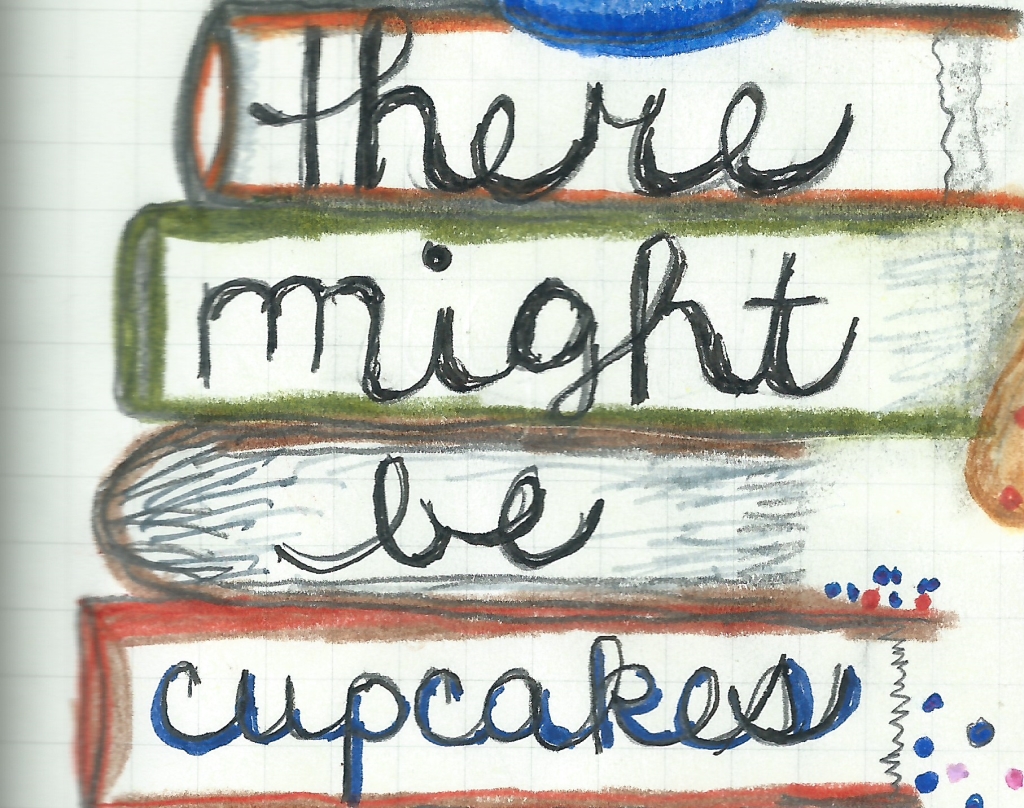 there
might
be
cupakes